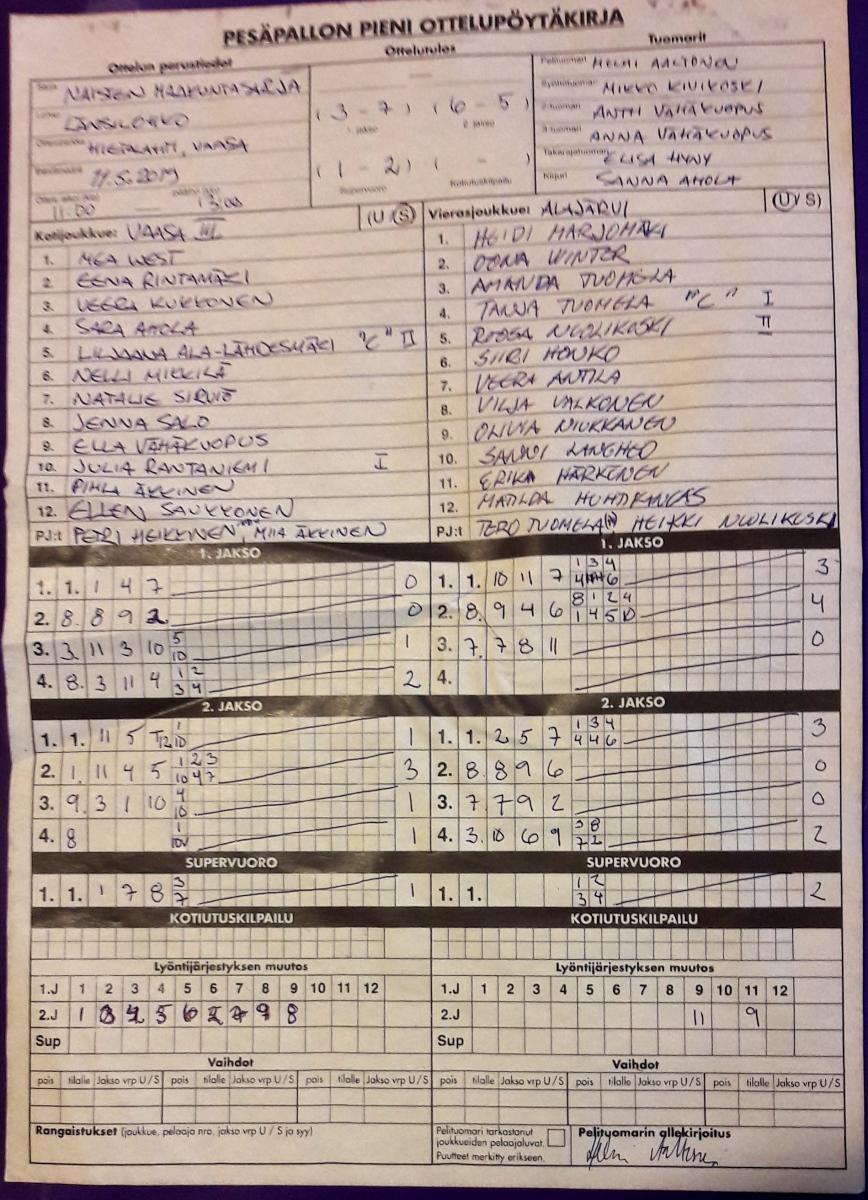 PESÄPALLON PIENI OTTELUPÖYTÄKIRJA
Ottelun perustiedot
Ottelutulos
Tuomarit
NAISTEN MAAKUNTASARJA
LÄNSILOHKO
HIETALAHTI, VAASA
11.5.2019
11:00 — 13:00
(3-7) (6-5)
1. jakso 2. jakso
(1-2) ( - )
Supervuoro Kotiutuskilpailu
Pelituomari HELMI AALTONEN
Syöttötuomari MIKKO KIVIKOSKI
2-tuomari ANTTI VÄHÄKUOPUS
3-tuomari ANNA VÄHÄKUOPUS
Takarajatuomari ELISA HYNY
Kirjuri SANNA AHOLA
Kotijoukkue: VAASA III (U/S)
1. MEA WEST
2. EENA RINTAMÄKI
3. VEERA KUKKONEN
4. SARA AHOLA
5. LILJAANA ALA-LÄHDESMÄKI "C" II
6. NELLI MIKKILÄ
7. NATALIE SIRVIÖ
8. JENNA SALO
9. ELLA VÄHÄKUOPUS
10. JULIA RANTANIEMI I
11. PIHLA ÄKKINEN
12. ELLEN SAUKKONEN
PJ:t PETRI HEIKKINEN, MIIA ÄKKINEN
Vierasjoukkue: ALAJÄRVI (U/S)
1. HEIDI MARJOMÄKI
2. OONA WINTER
3. AMANDA TUOMELA
4. TAIJA TUOMELA "C" I
5. ROOSA NUOLIKOSKI II
6. SIIRI HONKO
7. VEERA ANTILA
8. VILJA VALKONEN
9. OLIVIA NIUKKANEN
10. SANNI LANGHED
11. ERIKA HÄRKÖNEN
12. MATILDA HUHTAKANGAS
PJ:t TERO TUOMELA HEIKKI NUOLIKOSKI
1. JAKSO
1. 1. 1 4 7 0
2. 8. 8 9 2 0
3. 3 11 3 10 5 10 1
4. 8. 3 11 4 1 2 3 4 2
2. JAKSO
1. 1. 11 5 1 10 1
2. 1 11 4 5 1 2 3 10 4 7 3
3. 9. 3 1 10 4 10 1
4. 8 1 10 1
SUPERVUORO
1. 1. 1 7 8 3 7 1
KOTIUTUSKILPAILU
Lyöntijärjestyksen muutos
1.J 1 2 3 4 5 6 7 8 9 10 11 12
2.J 1 8
Sup
Vaihdot
pois tilalle Jakso vrp U/S pois tilalle Jakso vrp U/S
Rangaistukset (joukkue, pelaaja nro, jakso vrp U / S ja syy)
1. JAKSO
1. 1. 10 11 7 1 3 4 4 6 3
2. 8. 9 4 6 8 1 2 4 1 4 5 10 4
3. 7. 7 8 11 0
4.
2. JAKSO
1. 1. 2 5 7 1 3 4 4 4 6 3
2. 8. 8 9 6 0
3. 7. 7 9 2 0
4. 3. 10 6 9 3 8 7 2 2
SUPERVUORO
1. 1. 1 2 3 4 2
KOTIUTUSKILPAILU
Lyöntijärjestyksen muutos
1.J 1 2 3 4 5 6 7 8 9 10 11 12
2.J 11 9
Sup
Vaihdot
pois tilalle Jakso vrp U/S pois tilalle Jakso vrp U/S
Pelituomari tarkastanut
joukkueiden pelaajaluvat.
Puutteet merkitty erikseen.
Pelituomarin allekirjoitus